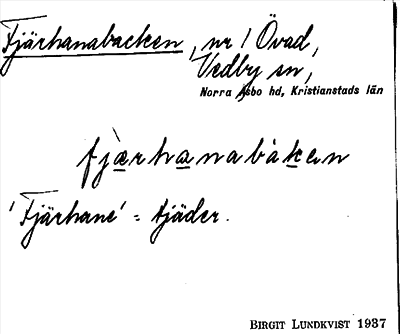 Tjärhanabacken, nr 1 Övad,
Vedby sn,
Norra Åsbo hd, Kristianstads län
fjærhanabàken
'Tjärhane' = tjäder.
BIRGIT LUNDKVIST 1937